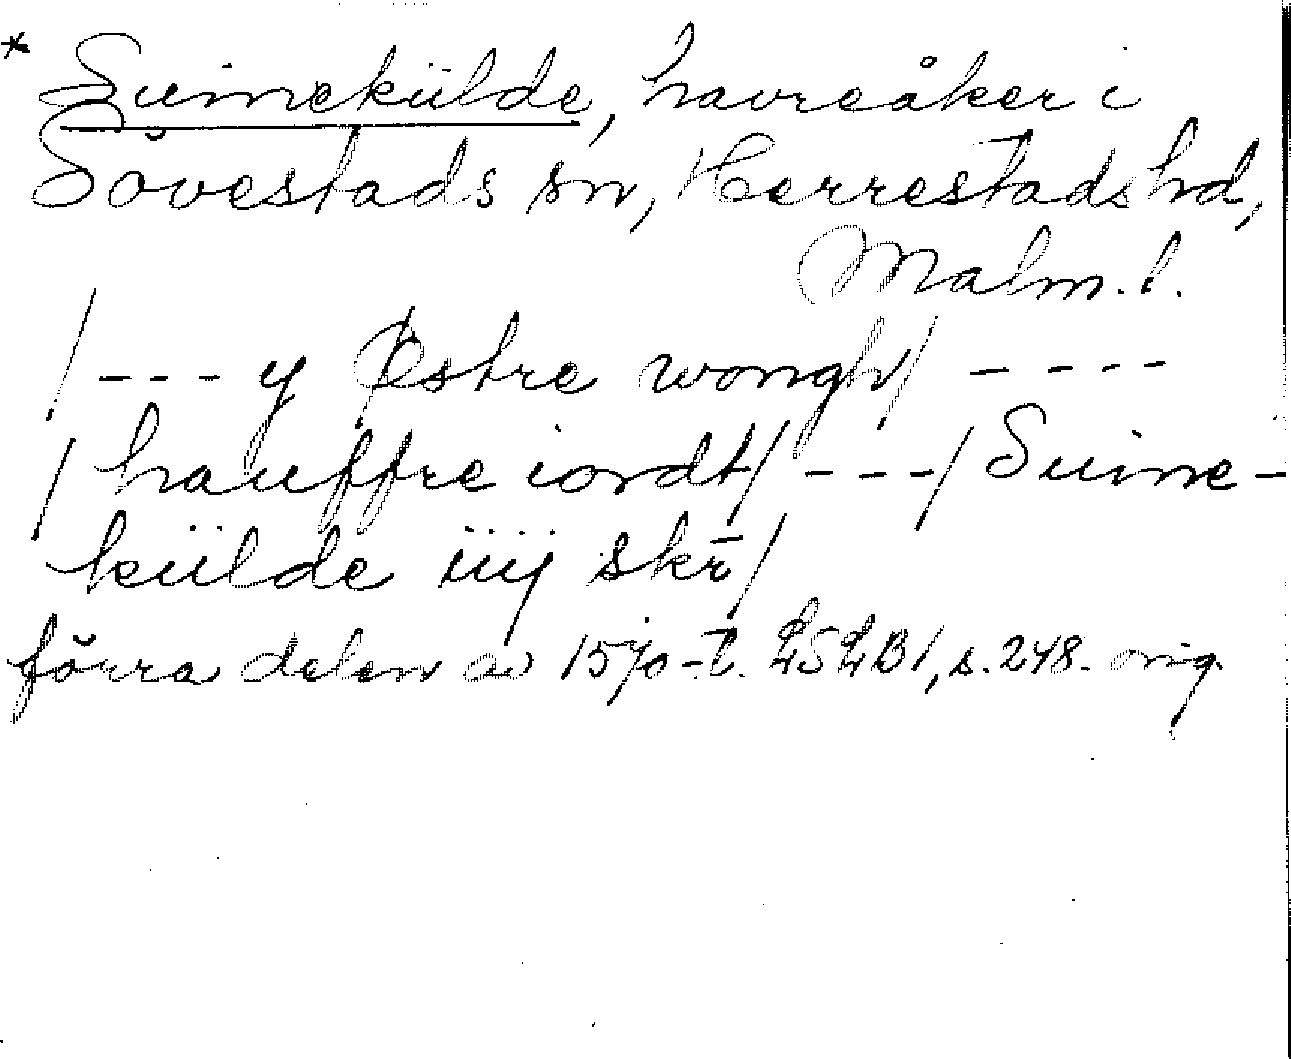 * Suinekülde, havreåker i
Sövestads sn, Herrestads hd,
Malm. l.
/---y Østre wongh/ ----
/hauffre iordt/ ---/Suine-
külde iiij skr̄/
förra delen av 1570-t. LSLB1, s. 248. orig.